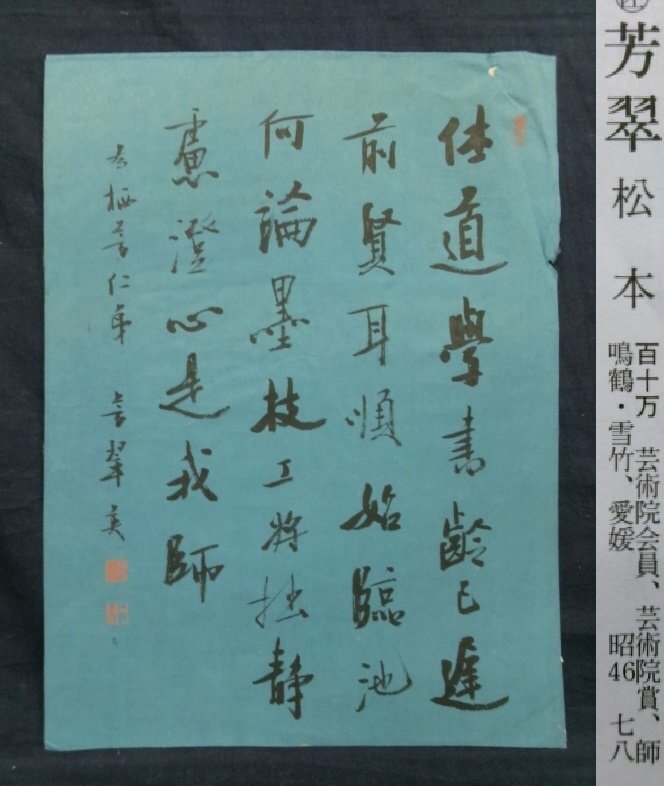 芳翠 松本
百十万 芸術院会員、芸術院賞、師
鳴鶴・雪竹、愛媛 昭46 七八
道學書齡已遲
前賢耳順始臨池
何論墨技工將拙静
慮澄心是我師
為栖芳仁弟 芳翠